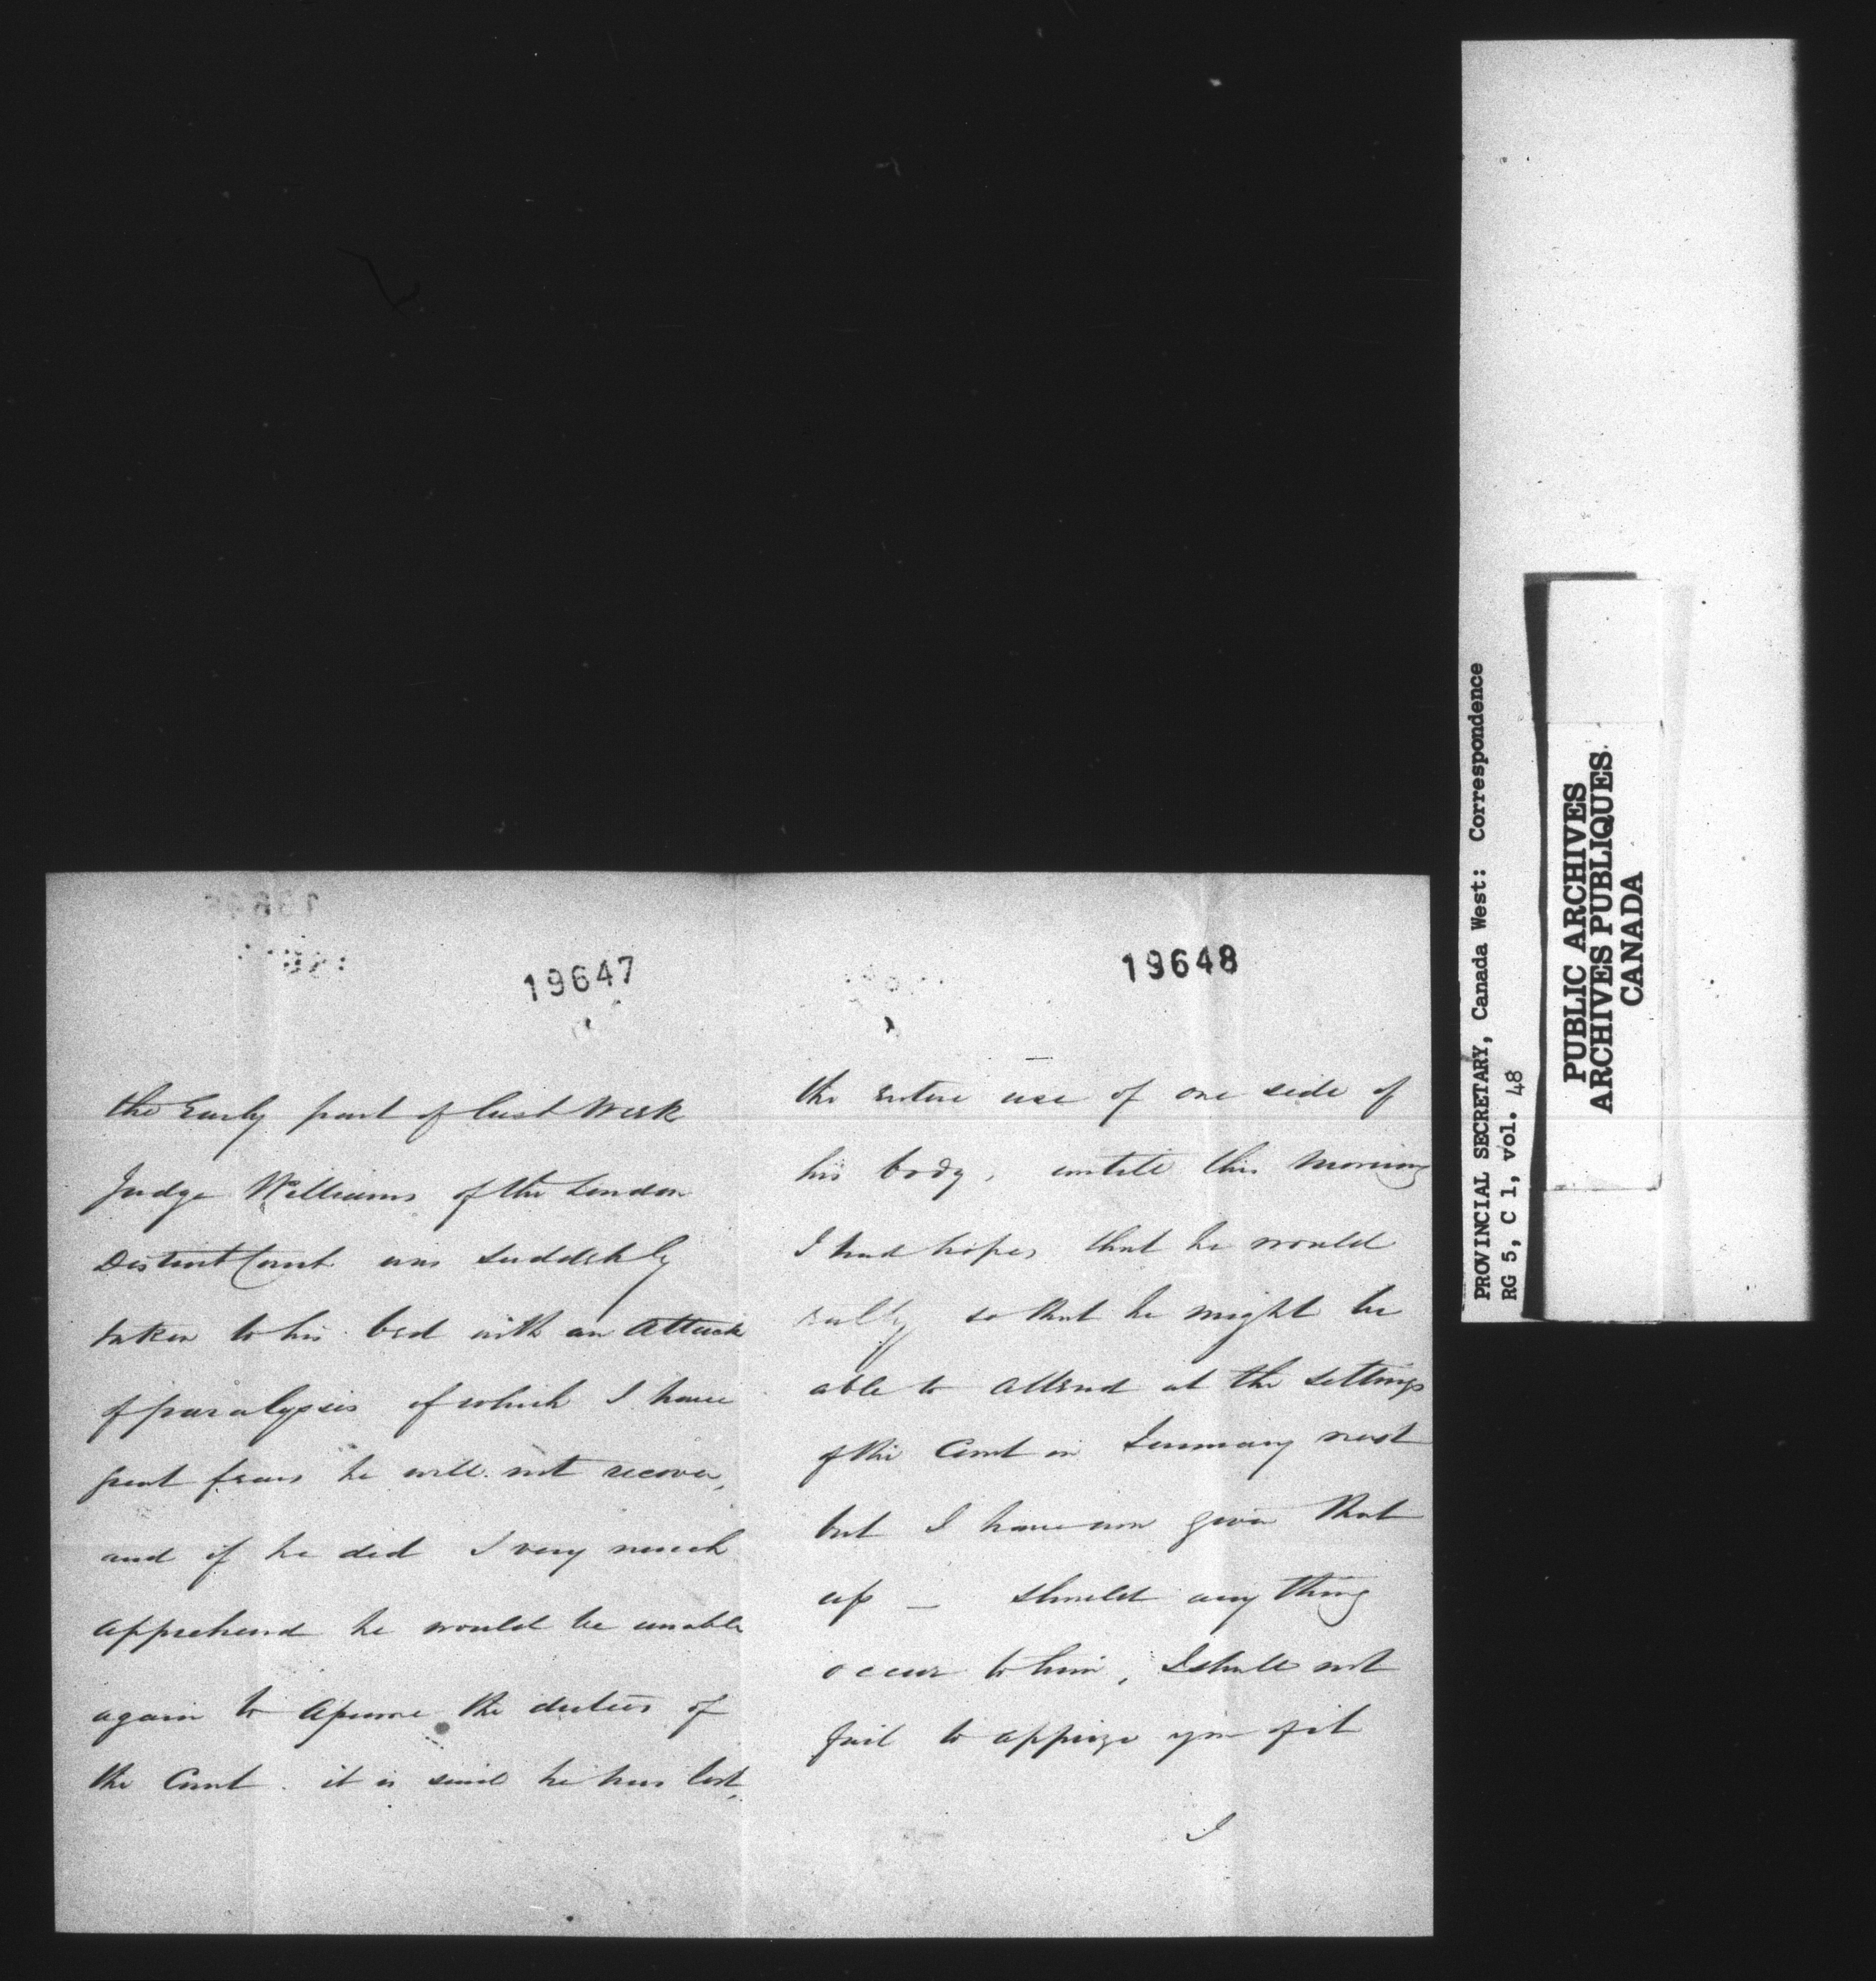 19647
the Early part of last Week
Judge Williams of the London
District Court was suddenly
taken to his bed with an Attack
of paralysis of which I have
great fears he will not recover,
and if he did I very much
apprehend he would be unable
again to assume the duties of
the Court. it is said he has lost,
19648
the entire use of one side of
his body, untill this Morning
I had hopes that he would
rally so that he might be
able to attend at the Sittings
of the Court in January next
but I have now given that
up — should any thing
occur to him, I shall not
fail to apprize you of it
I
PROVINCIAL SECRETARY, Canada West: Correspondence
RG 5, C 1, vol. 48
PUBLIC ARCHIVES
ARCHIVES PUBLIQUES
CANADA